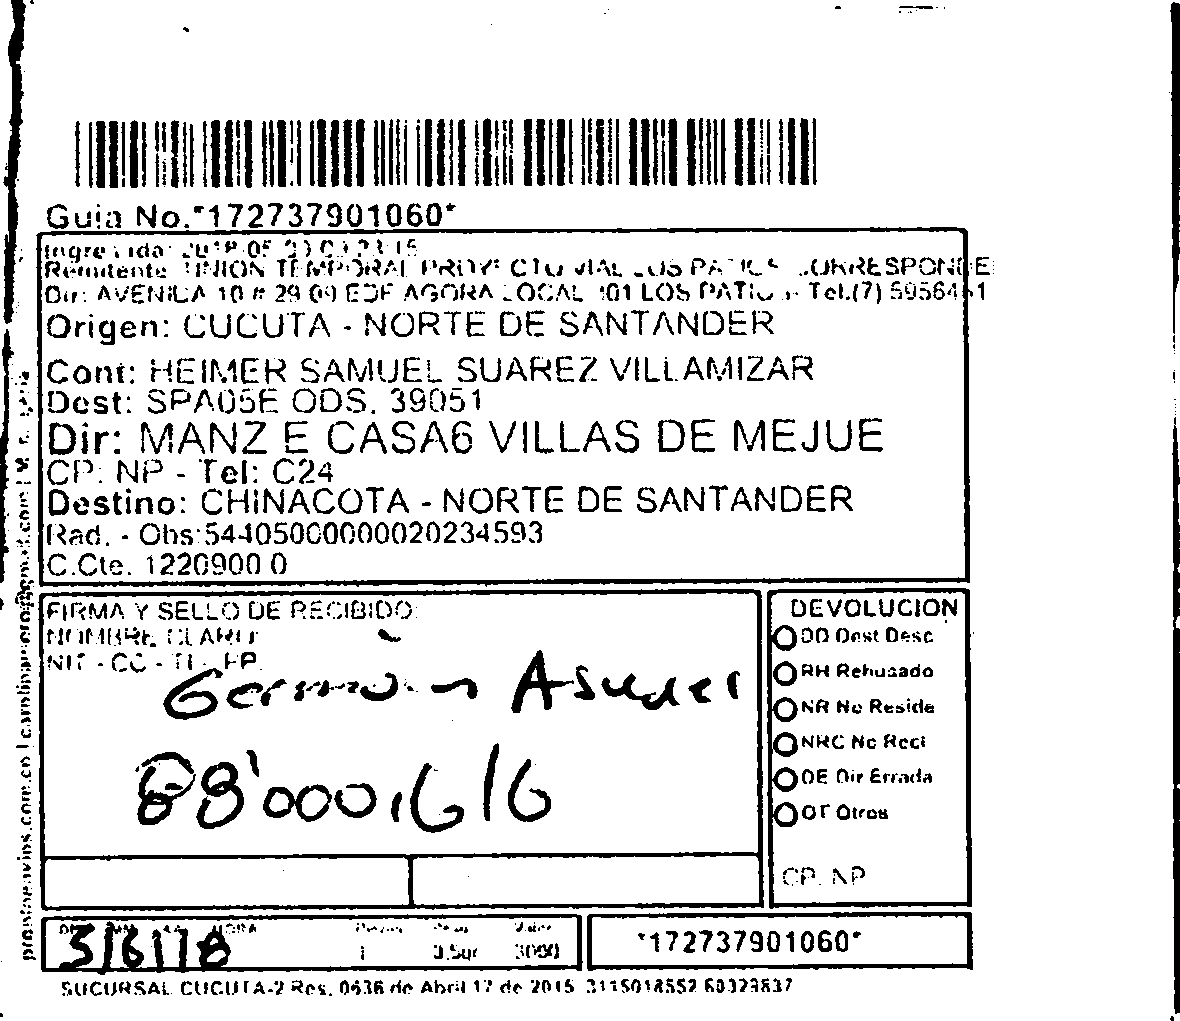 Guia No.*172737901060*
Remitente: UNION TEMPORAL PROYECTO VIAL LOS PATIOS CORRESPONDE
Dir: AVENIDA 10 # 29 09 EDF AGORA LOCAL 101 LOS PATIOS Tel.(7) 5956451
Origen: CUCUTA - NORTE DE SANTANDER
Cont: HEIMER SAMUEL SUAREZ VILLAMIZAR
Dest: SPA05E ODS. 39051
Dir: MANZ E CASA6 VILLAS DE MEJUE
CP: NP - Tel: C24
Destino: CHINACOTA - NORTE DE SANTANDER
Rad. - Obs:544050000000020234593
C.Cte. 1220900 0
FIRMA Y SELLO DE RECIBIDO
NOMBRE CLARO
NIT - CC - TI - PP.
Germán
88'000,616
DEVOLUCION
DD Dest Desc
RH Rehusado
NR No Reside
NRC No Reci
DE Dir Errada
OT Otros
CP. NP
HORA
5/6/18
1 0.5gr 3000
*172737901060*
SUCURSAL CUCUTA-2 Res. 0636 de Abril 17 de 2015 3115018552 60323837